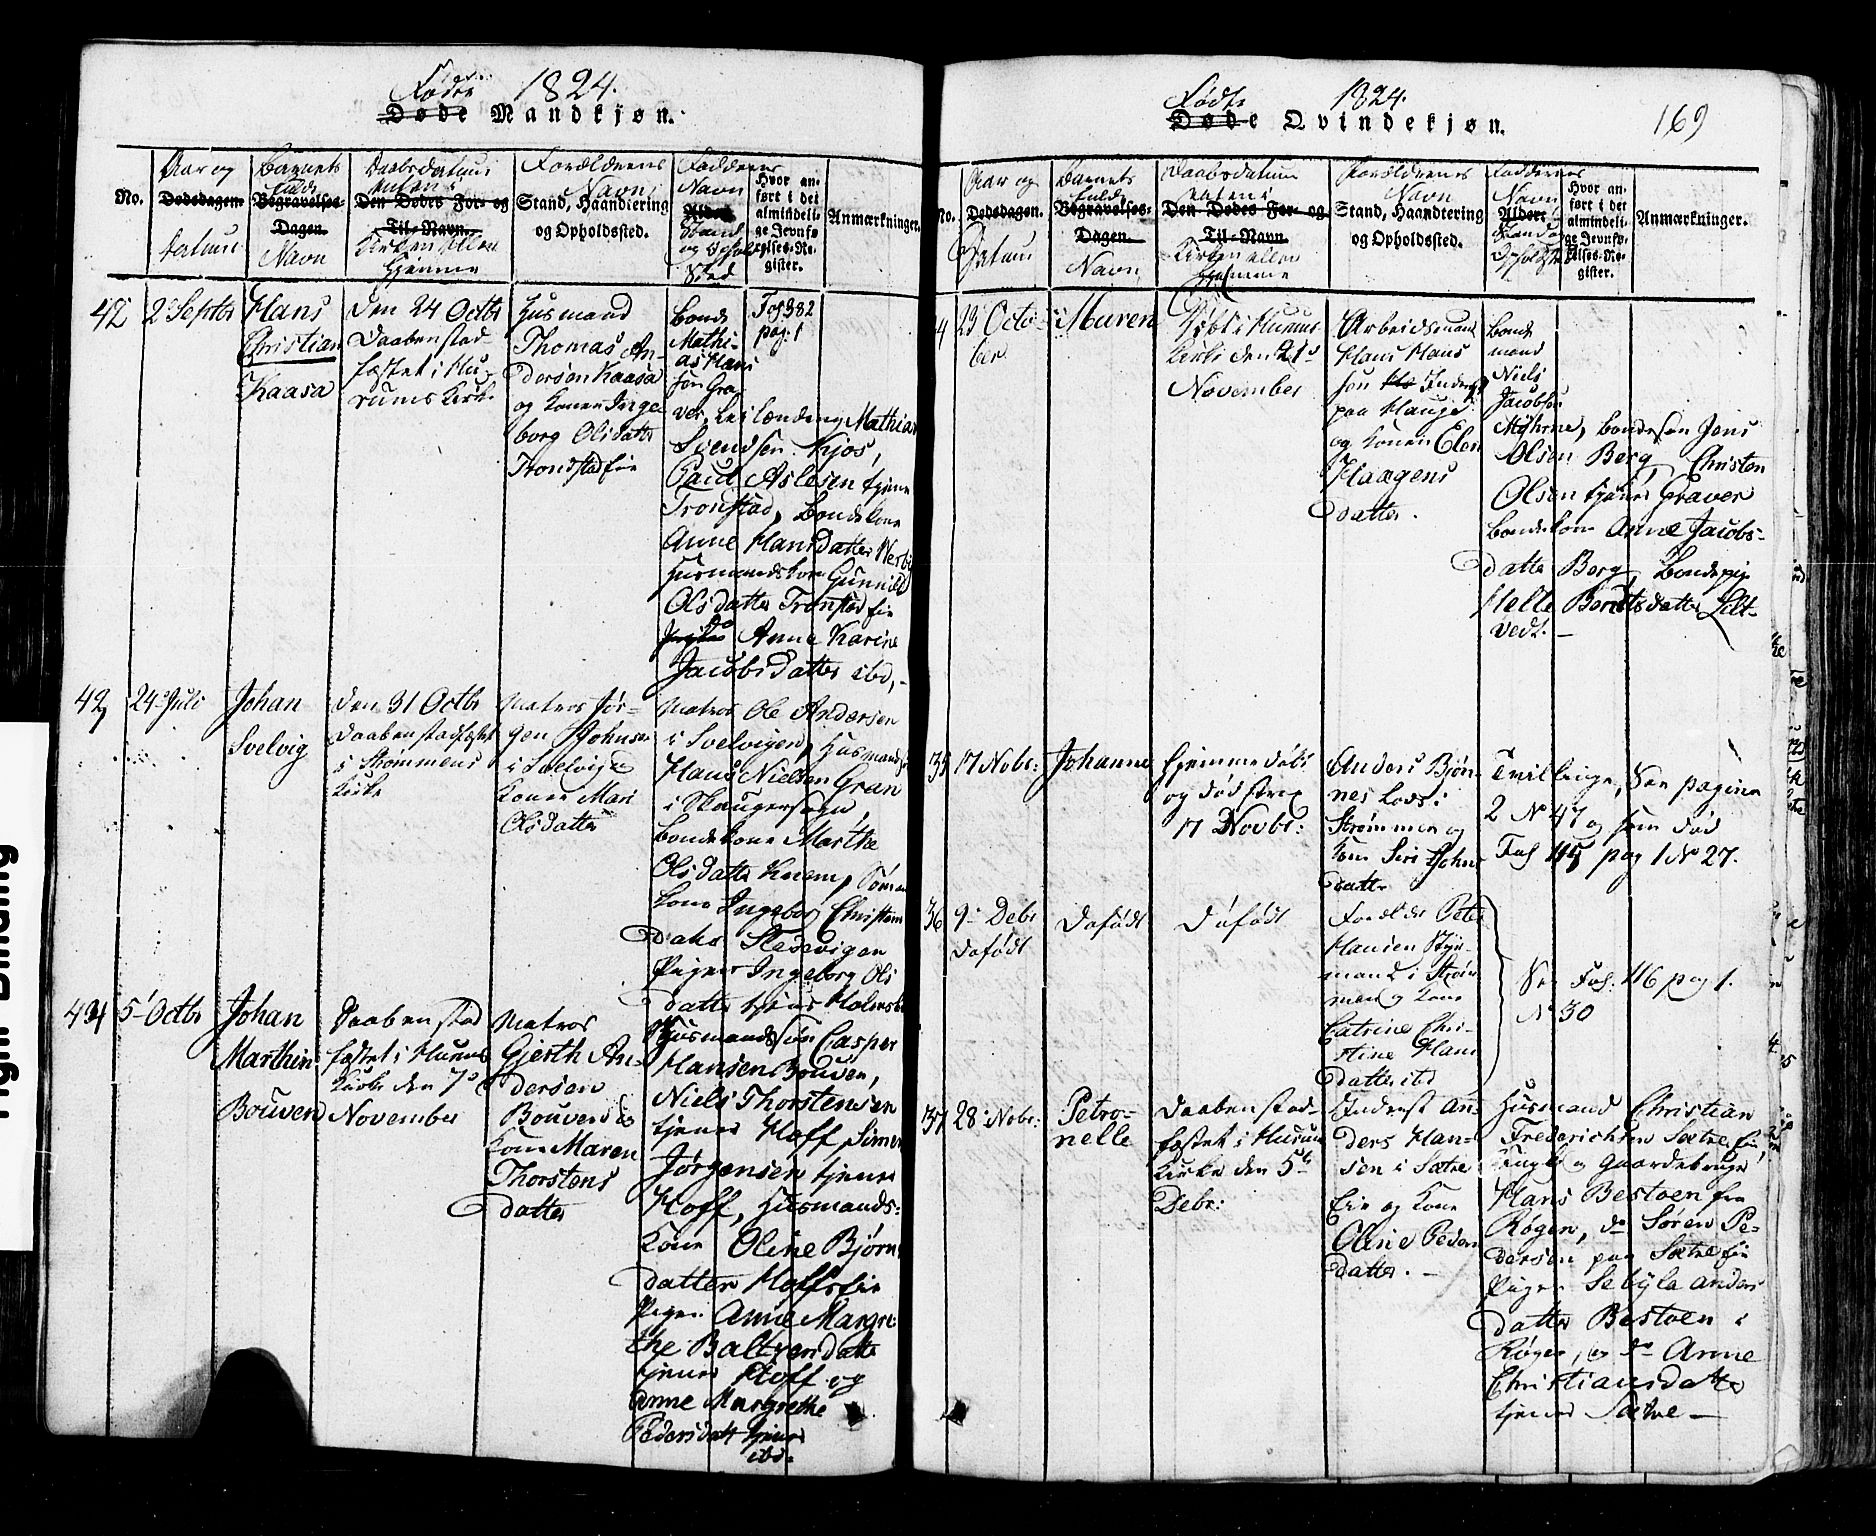 Fødte 1824.
Døde Mandkjøn.
No.
Aar og
Dødsdagen.
Datum
Barnets
fulde
Begravelses-
Dagen.
Navn
Daabsdatum
enten i
Den Dødes For- og
Til-Navn.
Kirken eller
hjemme
Forældrenes
Navn,
Stand, Haandtering
og Opholdssted.
Faddernes
Navn
Alder
Stand
og Ophold
Sted
Hvor an-
ført i det
almindeli-
ge Jevnfø-
relses-Re-
gister.
Anmærkninger.
42
2 Septbr
Hans
Christian
Kaasa
den 24 Octbr
Daaben stad-
fæstet i Hu-
rums Kirke
Husmand
Thomas An-
dersen Kaasa
og Konen Inge
borg Olsdatter
Tronstad eie
Fol 382
pag: 1
Bonde
Mathi-
as Hans
sen Gra-
ver, Leilænding Mathias
Svendsen Kjos,
Poul Aslesen tjener
Tronstad, Bondekone
Anne Hansdatter Nerby
Husmandskone Gunnild
Olsdatter Tronstad eie
Anne Karine
Jacobsdatter ibd,-
42
24 Juli
Johan
Svelvig
den 31 Octbr
Daaben stadfæstet
i Strømmens
Kirke
Matros Jør-
gen Johnsen
i Svelvigen
Konen Mari
Olsdatter
Matros Ole Andersen
i Svelvigen, Husmand
Hans Nielsen Gran
i Skauger sogn
Bondekone Marthe
Olsdatter Knem, Sømands
Kone Ingebor Christens
datter Stedevigen
Pigen Ingeborg Ols
datter tjener Holmsbo
43
5 Octbr
Johan
Marthin
Bouven
Daaben stad
fæstet i Hurums
Kirke den 7
November
Matros
Gjerth An-
dersen
Bouven og
Kone Maren
Thorstens
datter
Husmandssøn Casper
Hansen Bouven,
Niels Thorstensen
tjener Hoff, Simen
Jørgensen tjener
Hoff, Husmands-
Kone Oline Bjørns
datter Hoffseie
Pigen Anne Margre-
the Baltzersdatter
tjener Hoff og
Anne Margrethe
Pedersdatt tjener
ibd-
Fødte 1824.
Døde Qvindekjøn.
169
No.
Aar og
Dødsdagen.
Datum
Barnets
fulde
Begravelses-
Dagen.
Navn
Daabsdatum
enten i
Den Dødes For- og
Til-Navn.
Kirken eller
hjemme
Forældrenes
Navn
Stand, Haandtering
og Opholdssted.
Faddernes
Navn
Alder
Stand og
Opholdsted
Hvor an-
ført i det
almindeli-
ge Jevnfø-
relses-Re-
gister.
Anmærkninger.
4
23 Octo-
ber
Maren
Døbt i Hurums
Kirke den 21
November
Arbeidsmand
Hans Hans
sen Inderst
paa Hauge
og Konen Elen
Haagens
datter.
Bonde
mand
Niels
Jacobsen
Myhrene, Bondesøn Jens
Olsen Berg, Christen
Olsen tjener Graver
Bondekone Anne Jacobs-
datter Berg, Bondepige
Helle Berntsdatter Lilt-
vedt.-
35
17 Nobr:
Johanne
hjemme døbt
og død strax
17 Novbr:
Anders Bjør-
nes Lods i
Strømmen og
Kone Siri Johns
datter
Tvillinge, See pagina
2 No 47 og som død
Fol 115 pag 1 No 27.
36
9 Debr
dødfødt
Dødfødt
Dødfødt
Forældre Peter
Hansen Styr-
mand i Strøm-
men og Kone
Catrine Chri-
stine Hans
datter ibd
See Fol: 116 pag 1.
No 30
37
28 Nobr:
Petro-
nelle
Daaben stad-
fæstet i Hurum
Kirke den 5te
Debr:
Inderst An-
ders Han-
sen i Sætre
Eie og Kone
Oline Peders
datter.-
Husmand Christian
Frederichsen Sætre eie,
og Gaardsbruger
Hans Bestoen fra
Røgen, do Søren Pe-
dersen paa Sætre eie
Pigen Sebyle Anders
datter Bestoen i
Røgen, og do Anne
Christiansdatter
tjener Sætre-